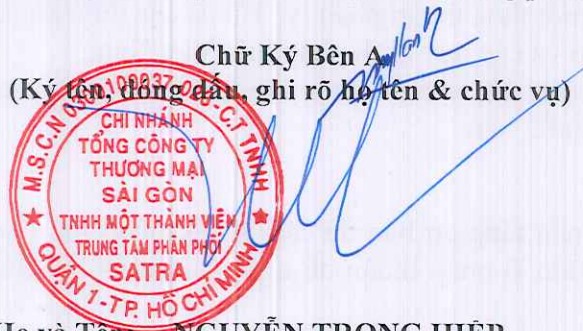 Chữ Ký Bên A
(Ký tên, đóng dấu, ghi rõ họ tên & chức vụ)
CHI NHÁNH
TỔNG CÔNG TY
THƯƠNG MẠI
SÀI GÒN
TNHH MỘT THÀNH VIÊN
TRUNG TÂM PHÂN PHỐI
SATRA
QUẬN 1-T.P. HỒ CHÍ MINH
Họ và Tên: NGUYỄN TRỌNG HIỆP